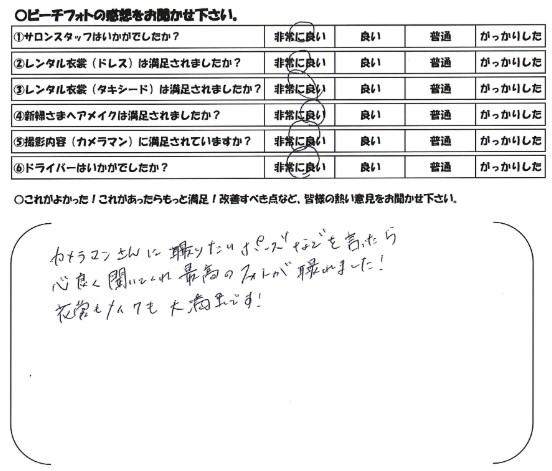 ○ビーチフォトの感想をお聞かせ下さい。
①サロンスタッフはいかがでしたか? 非常に良い 良い 普通 がっかりした
②レンタル衣裳(ドレス)は満足されましたか? 非常に良い 良い 普通 がっかりした
③レンタル衣裳(タキシード)は満足されましたか? 非常に良い 良い 普通 がっかりした
④新婦さまヘアメイクは満足されましたか? 非常に良い 良い 普通 がっかりした
⑤撮影内容(カメラマン)に満足されていますか? 非常に良い 良い 普通 がっかりした
⑥ドライバーはいかがでしたか? 非常に良い 良い 普通 がっかりした
○これがよかった!これがあったらもっと満足!改善すべき点など、皆様の熱い意見をお聞かせ下さい。
カメラマンさんに撮りたいポーズなどを言ったら
心良く聞いてくれ最高のフォトが撮れました!
衣裳もメイクも大満足です!